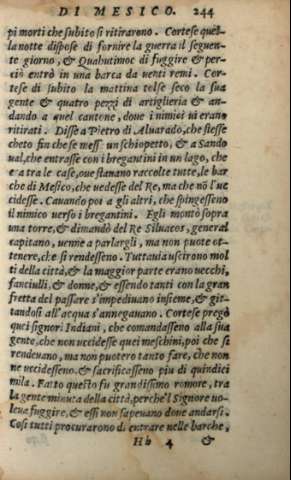 DI MESICO. 244
pi morti che subito si ritirareno. Cortese quel-
la notte dispose di fornire la guerra il seguen-
te giorno, & Quahutimoc di fuggire & per-
ciò entrò in una barca da uenti remi. Cor-
tese di subito la mattina tolse seco la sua
gente & quatro pezzi di artiglieria & an-
dando a quel cantone, doue i nimici ui erano
ritirati. Disse a Pietro di Aluarado, che stesse
cheto fin che se ness' un schiopetto, & a Sando
ual, che entrasse con i bregantini in un lago, che
e a tra le case, oue stauano raccolte tutte, le bar
che di Mesico, che uedesse del Re, ma che nō l'uc
cidesse. Cauando poi a gli altri, che spingesseno
il nimico uerso i bregantini. Egli montò sopra
una torre, & dimandò del Re Siluacos, general
capitano, uenne a parlargli, ma non puote ot-
tenere, che si rendesseno. Tuttauia uscirono mol
ti della città, & la maggior parte erano uecchi,
fanciulli, & donne, & essendo tanti con la gran
fretta del passare s'impediuano insieme, & git-
tandosi all'acqua s'annegauano. Cortese pregò
quei signori Indiani, che comandasseno alla sua
gente, che non uccidesse quei meschini, poi che si
rendeuano, ma non potero tanto fare, che non
ne uccidesseno. & sacrificasseno piu di quindici
mila. Fatto questo fu grandissimo romore, tra
la gente minuta della città, perche'l Signore uo-
leua fuggire, & essi non sapeuano doue andarsi.
Cosi tutti procurarono di entrare nelle barche,
Hh 4 &